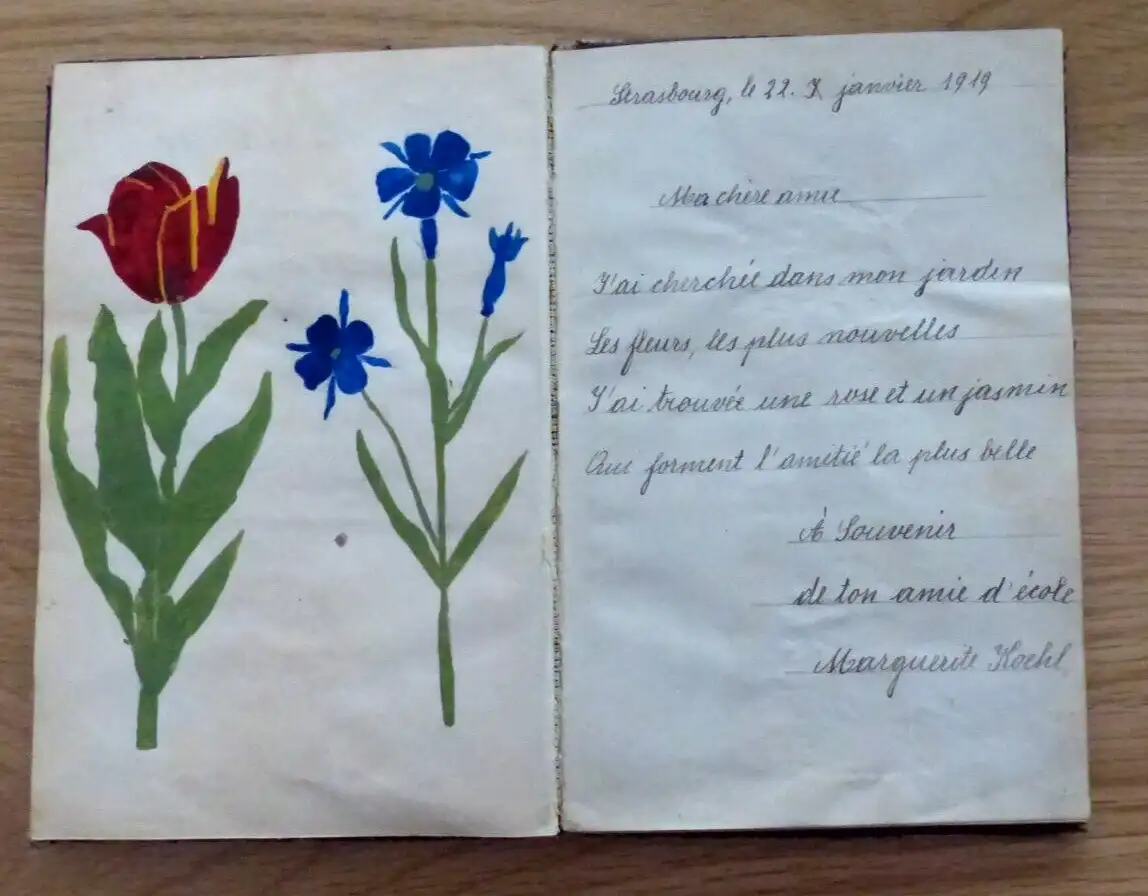 Strasbourg, le 22. X janvier 1919
Ma chère amie
J'ai cherchée dans mon jardin
Les fleurs, les plus nouvelles
J'ai trouvée une rose et un jasmin
Qui forment l'amitié la plus belle
À Souvenir
de ton amie d'école
Marguerite Koehl